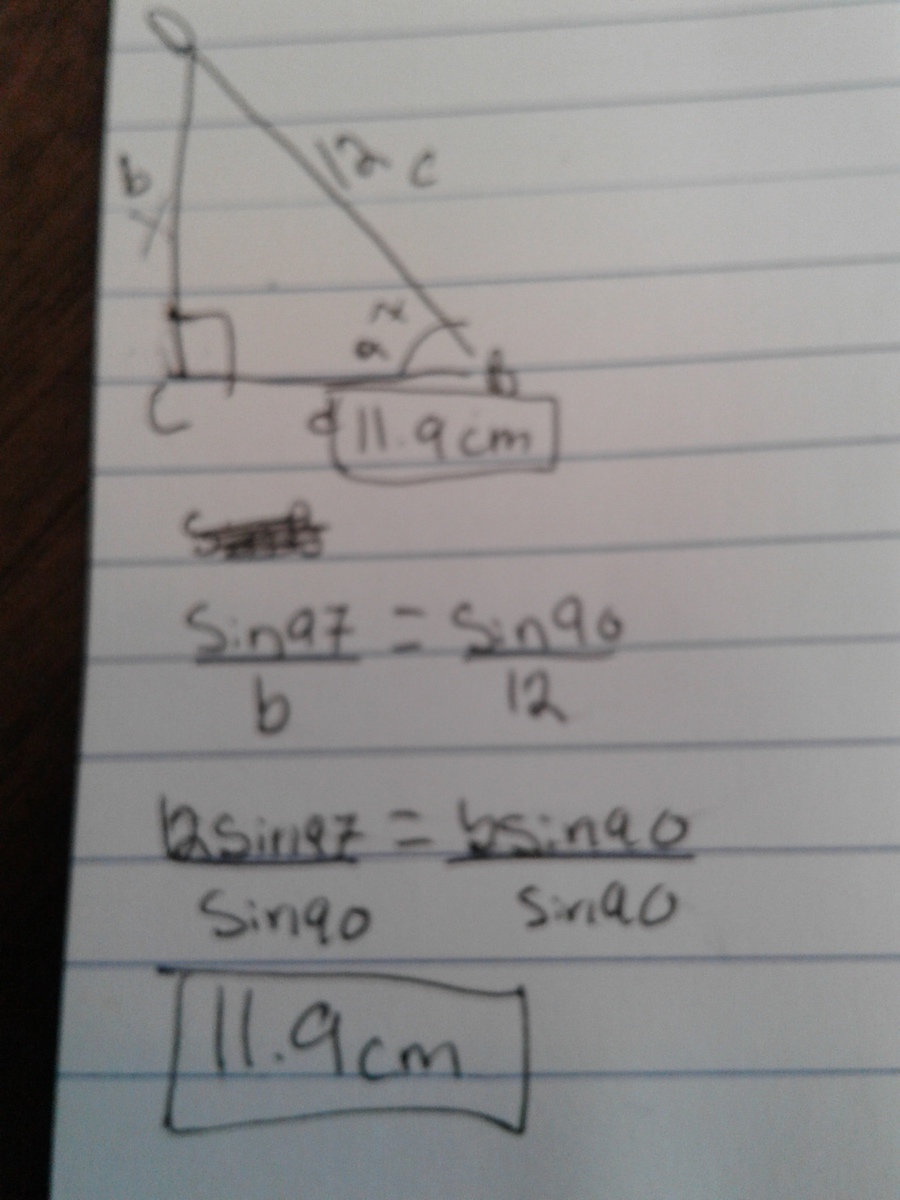 12 c
b
B
C
11.9cm
Sin97 = Sin90
b 12
12Sin97 = bsin90
Sin90 sin90
11.9cm